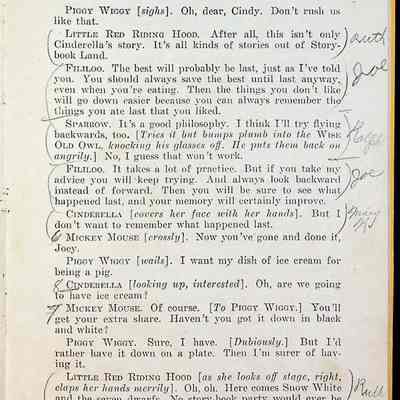 PIGGY WIGGY [sighs]. Oh, dear, Cindy. Don't rush us
like that.
LITTLE RED RIDING HOOD. After all, this isn't only
Cinderella's story. It's all kinds of stories out of Story-
book Land.
Ruth
FILILOO. The best will probably be last, just as I've told
you. You should always save the best until last anyway,
even when you're eating. Then the things you don't like
will go down easier because you can always remember the
things you ate last that you liked.
Joe
SPARROW. It's a good philosophy. I think I'll try flying
backwards, too. [Tries it but bumps plumb into the WISE
OLD OWL, knocking his glasses off. He puts them back on
angrily.] No, I guess that won't work.
Ralph
FILILOO. It takes a lot of practice. But if you take my
advice you will keep trying. And always look backward
instead of forward. Then you will be sure to see what
happened last, and your memory will certainly improve.
Joe
CINDERELLA [covers her face with her hands]. But I
don't want to remember what happened last.
Mary
6 MICKEY MOUSE [crossly]. Now you've gone and done it,
Joey.
PIGGY WIGGY [wails]. I want my dish of ice cream for
being a pig.
8 CINDERELLA [looking up, interested]. Oh, are we going
to have ice cream?
MICKEY MOUSE. Of course. [To PIGGY WIGGY.] You'll
get your extra share. Haven't you got it down in black
and white?
PIGGY WIGGY. Sure, I have. [Dubiously.] But I'd
rather have it down on a plate. Then I'm surer of hav-
ing it.
LITTLE RED RIDING HOOD [as she looks off stage, right,
claps her hands merrily]. Oh, oh. Here comes Snow White
and the seven dwarfs. No story-book party would ever be
Ruth